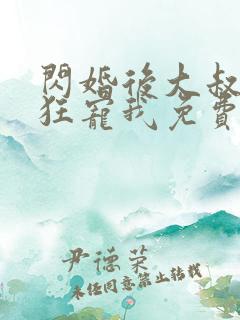 閃婚後大叔
狂寵我免費
尹德榮
未經同意禁止轉載